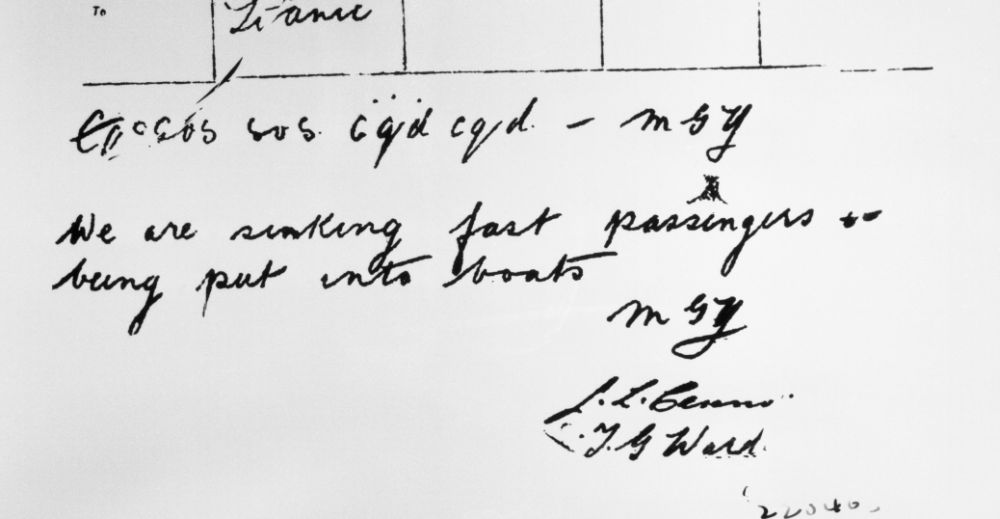 To
Titanic
SOS SOS cqd cqd - MGY
We are sinking fast passengers
being put into boats
MGY
T. G Ward